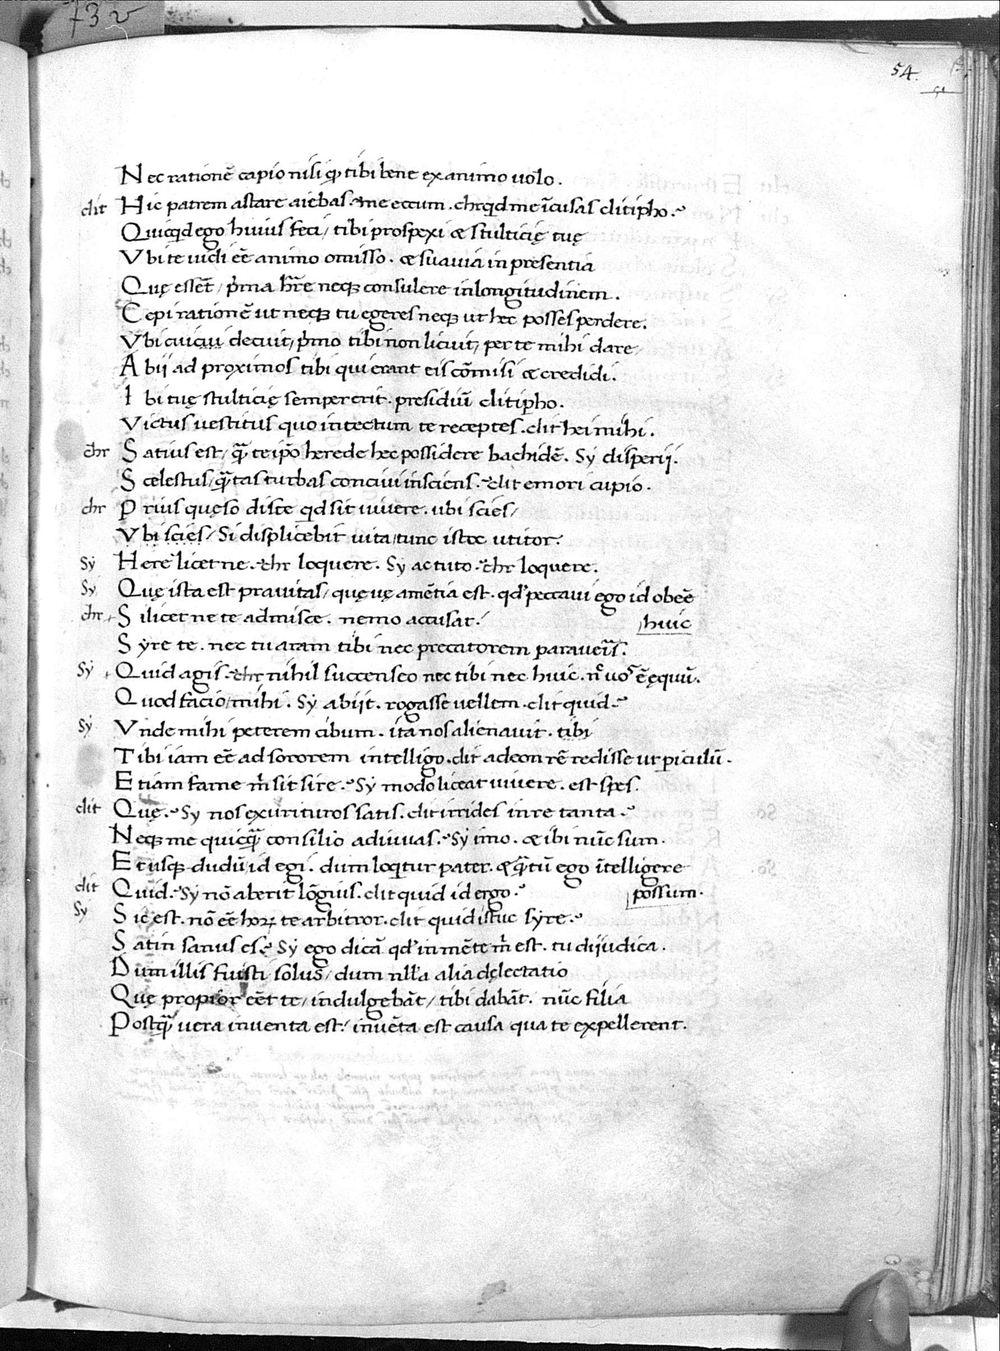 732
54.
Nec rationē capio nisi qđ tibi bene ex animo uolo.
clit Hic patrem astare aiebas. me eccum. chr qđ me īcusas clitipho.
Quicqđ ego huius feci / tibi prospexi & stulticię tuę
Vbi te uidi eē animo omisso. & suauia in presentia
Quę essēt / pͥma hr̄e neqꝫ consulere in longitudinem.
Cepi rationē ut neqꝫ tu egeres neqꝫ ut hec posses perdere.
Vbi cuicui decuit / pͥmo tibi non licuit / per te mihi dare
Abij ad proximos tibi qui erant eis cōmisi & credidi.
Ibi tuę stulticię semper erit. presidiū clitipho.
Victus uestitus quo in tectum te receptes. clit hei mihi.
chr Satius est / qͣ̄ te ip̄o herede hec possidere bachidē. Sy disperij.
Scelestus / qͣ̄tas turbas conciui insciens. clit emori cupio.
chr Prius quęso disce qđ sit uiuere. ubi scies /
Vbi scies / Si displicebit uita / tunc istoc utitor.
Sy Here licet ne. chr loquere. Sy ac tuto. chr loquere.
Sy Quę ista est prauitas / quę uę amētia est. qđ peccaui ego id obeē
huic
chr Silicet ne te admisce. nemo accusat.
Syre te. nec tu aram tibi nec precatorem paraueris.
Sy Quid agis. chr nihil succenseo nec tibi nec huic. nͨ uoˢ ē ęquū.
Quod facio / mihi. Sy abijt. rogasse uellem. clit quid.
Sy Vnde mihi peterem cibum. ita nos alienauit. tibi
Tibi iam eē ad sororem intelligo. clit adeon rē redisse ut periculū.
Etiam fame m̄ sit sire. Sy modo liceat uiuere. est spes.
clit Quę. Sy nos exurituros satis. clit irrides in re tanta.
Neqꝫ me quicqͣ̄ consilio adiuuas. Sy imo. & ibi nūc sum.
Et usqꝫ dudū id egi. dum loqͥtur pater. & qͣ̄tū ego ītelligere
possum.
clit Quid. Sy nō aberit lōgius. clit quid id ergo.
Sy Sic est. nō eē hoꝝ te arbitror. clit quid istuc syre.
Satin sanus es. Sy ego dicā qđ in mēte m̄ est. tu dijudica.
Dum illis fuisti solus / dum nlla alia delectatio
Quę propior eēt te / indulgebāt / tibi dabāt. nūc filia
Postqͣ̄ uera inuenta est. inuēta est causa qua te expellerent.